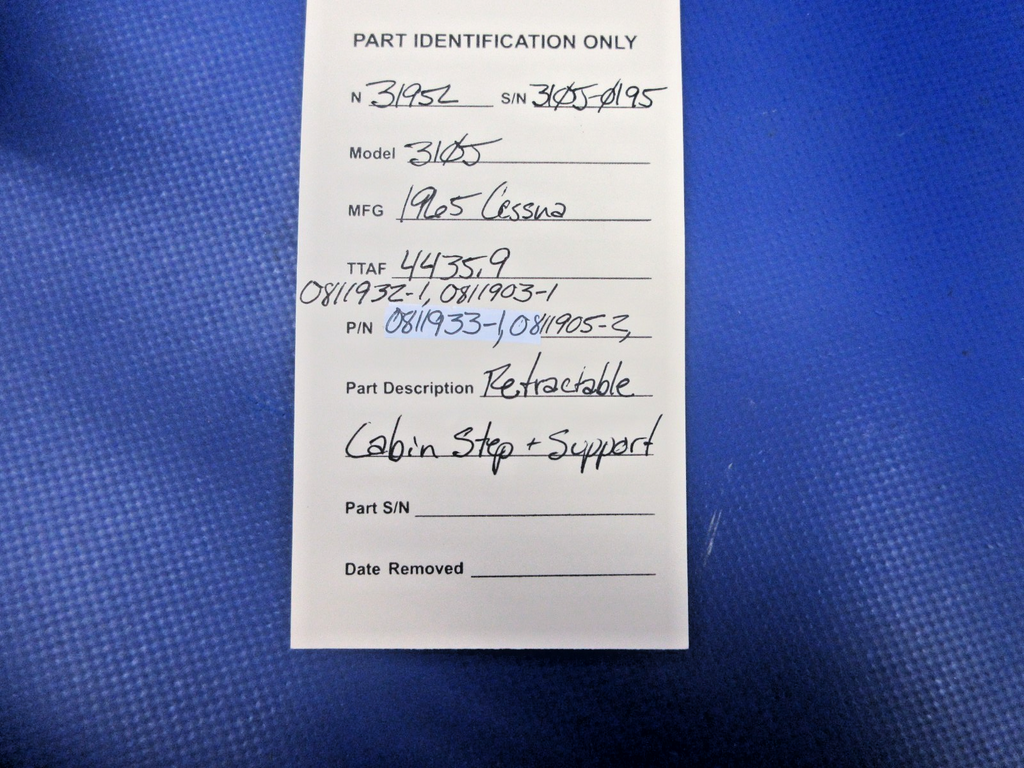 PART IDENTIFICATION ONLY
N 3195L S/N 310J-0195
Model 310J
MFG 1965 Cessna
TTAF 4435.9
0811932-1, 0811903-1
P/N 0811933-1, 0811905-2,
Part Description Retractable
Cabin Step + Support
Part S/N
Date Removed